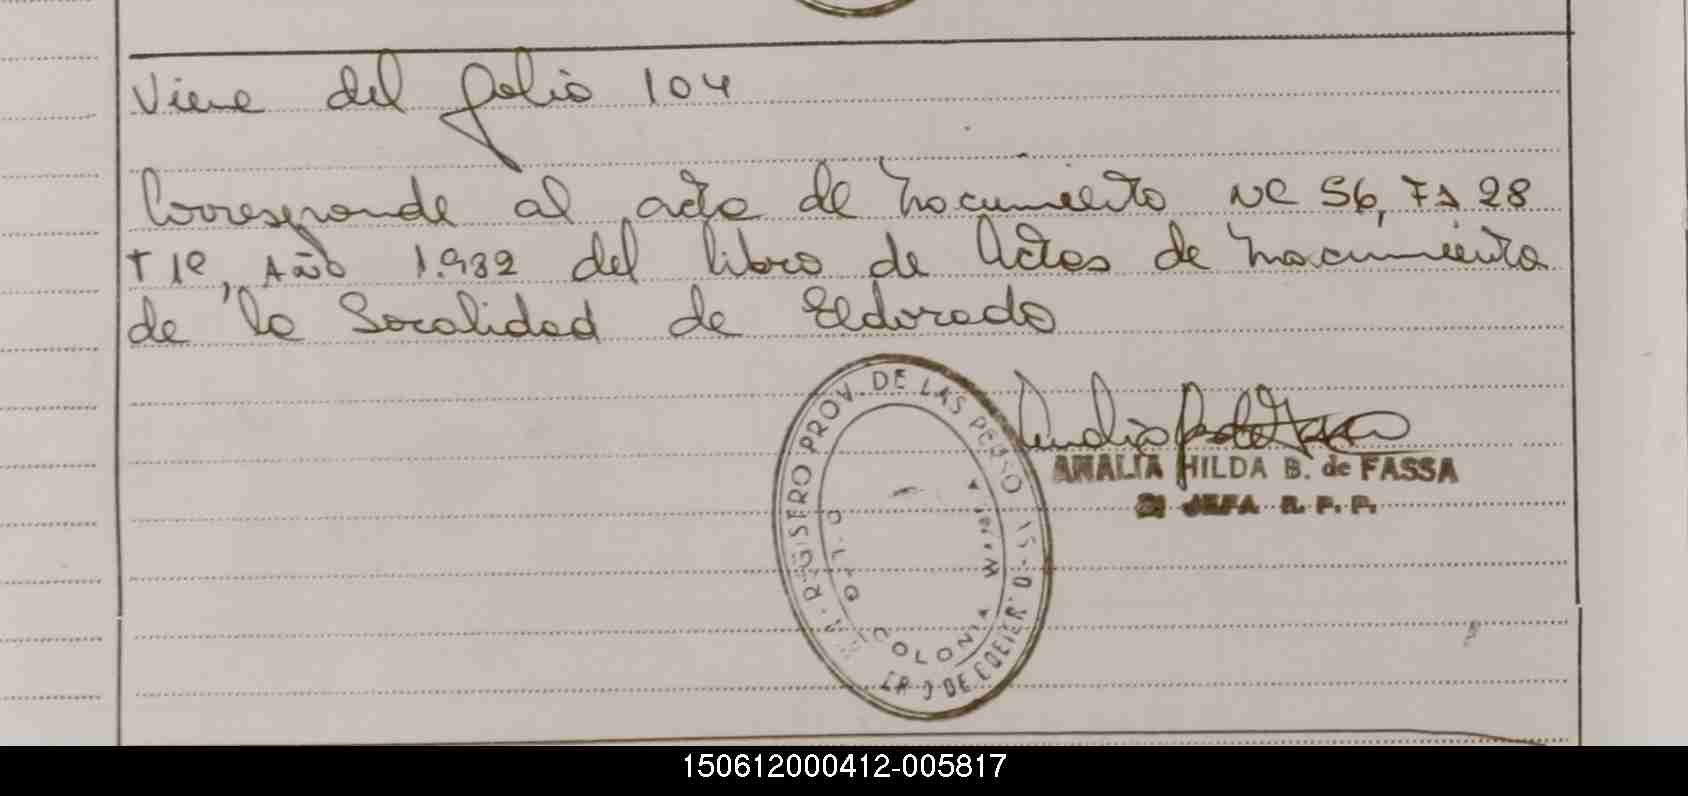 Viene del folio 104
Corresponde al acta de Nacimiento Nº 56, Fª 28
Tº 1º, Año 1.982 del libro de Actas de Nacimiento
de la Localidad de Eldorado
PROV. DE LAS
COLONIA
ANALIA HILDA B. de FASSA
JEFA R. P. P.
150612000412-005817